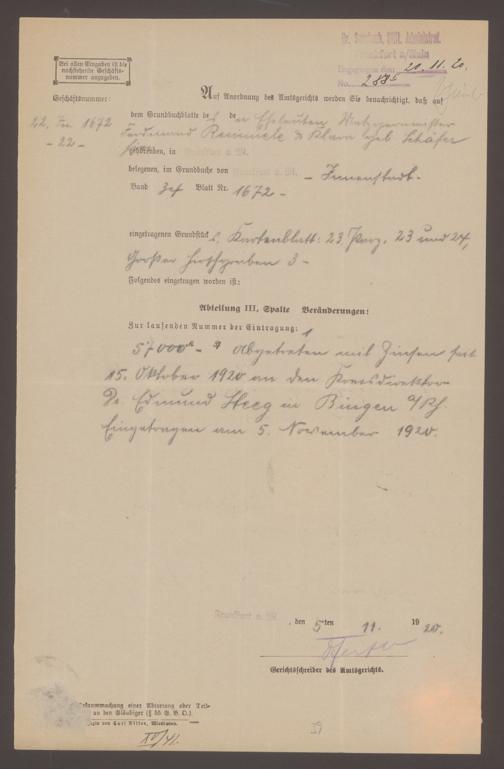 Dr. Senckenb. Stift. Administrat.
Frankfurt a/Main
Eingegangen den 20.11.20.
No.
Bei allen Eingaben ist die
nachstehende Geschäfts-
nummer anzugeben.
Geschäftsnummer:
22. 1672
- 22 -
Auf Anordnung des Amtsgerichts werden Sie benachrichtigt, daß auf
dem Grundbuchblatte des der Eheleuten Metzgermeister
Ferdinand & Klara geb. Schäfer
gehörenden, in Frankfurt a. M.
belegenen, im Grundbuche von Frankfurt a. M. - Innenstadt -
Band Blatt Nr. 1672 -
eingetragenen Grundstück Kartenblatt: 23 Parz. 23 und 24,
Großer Hirschgraben 3 -
Folgendes eingetragen worden ist:
Abteilung III, Spalte Veränderungen:
Zur laufenden Nummer der Eintragung: 1
57000 - Abgetreten mit Zinsen seit
15. Oktober 1920 an den Kreisdirektor
Dr. Edmund Steeg in Bingen a/Rh.
Eingetragen am 5. November 1920.
Frankfurt a. M. , den 5 ten 11. 1920.
Gerichtsschreiber des Amtsgerichts.
Bekanntmachung einer Abtretung oder Teil-
an den Gläubiger (§ 55 G. B. O.).
von Carl Ritter, Wiesbaden.
XV/41.
39